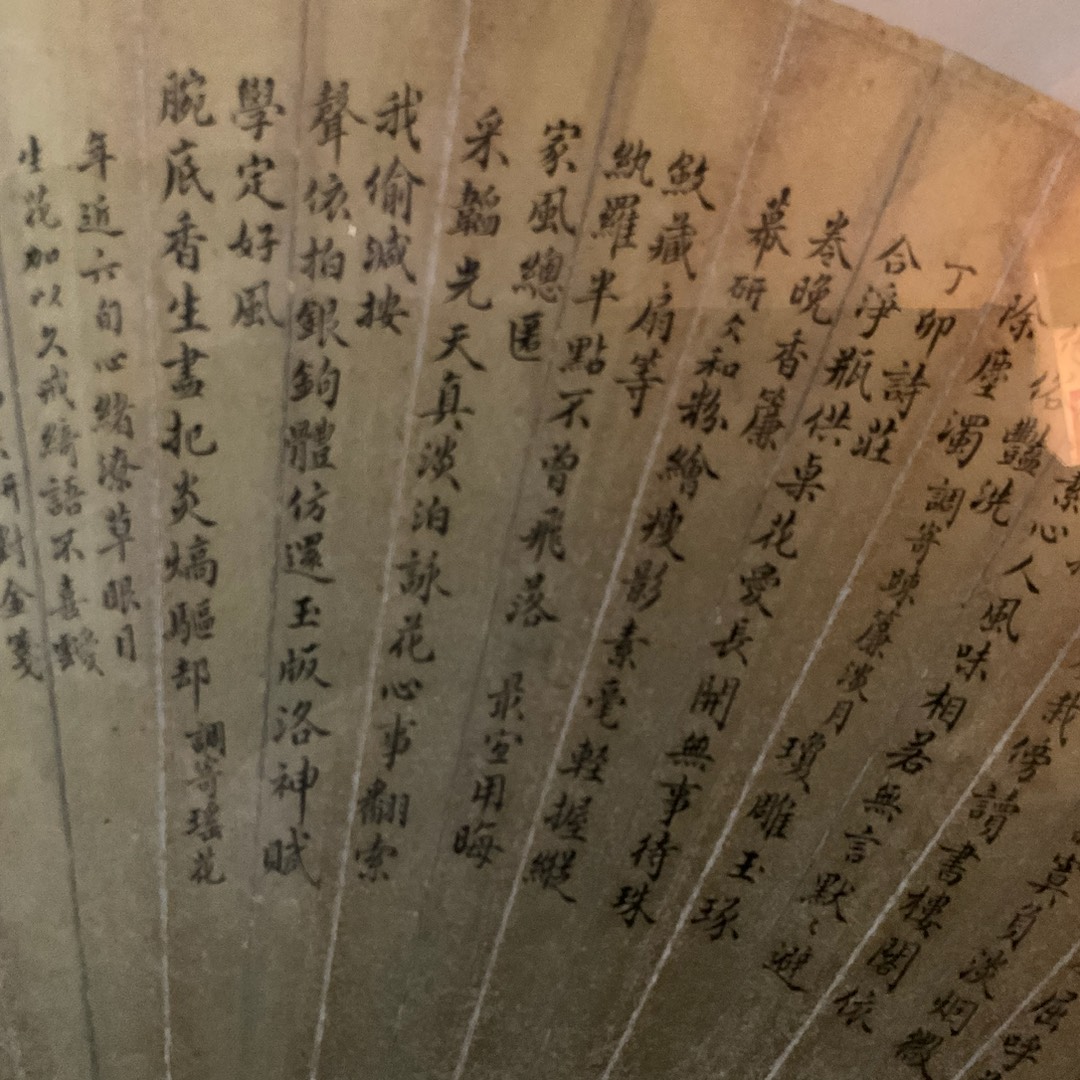 屈呼
算負淡烟微
栽傍讀書樓閣依
素心人風味相若無言默々避
俗豔洗
除塵濁調寄疎簾淡月 瓊雕玉琢
丁卯詩莊
合淨瓶供桌花愛長開無事待珠
卷晚香簾
幕研和粉繪瘦影素毫輕握縱
斂藏扇等
紈羅半點不曾飛落 最宜用晦
家風總匿
采韜光天真淡泊詠花心事翻索
我偷減按
聲依拍銀鉤體仿還玉版洛神賦
學定好風
腕底香生盡把炎熇驅却 調寄瑤花
年近六旬心緒潦草眼目
生花加以久戒綺語不喜靉
對金箋